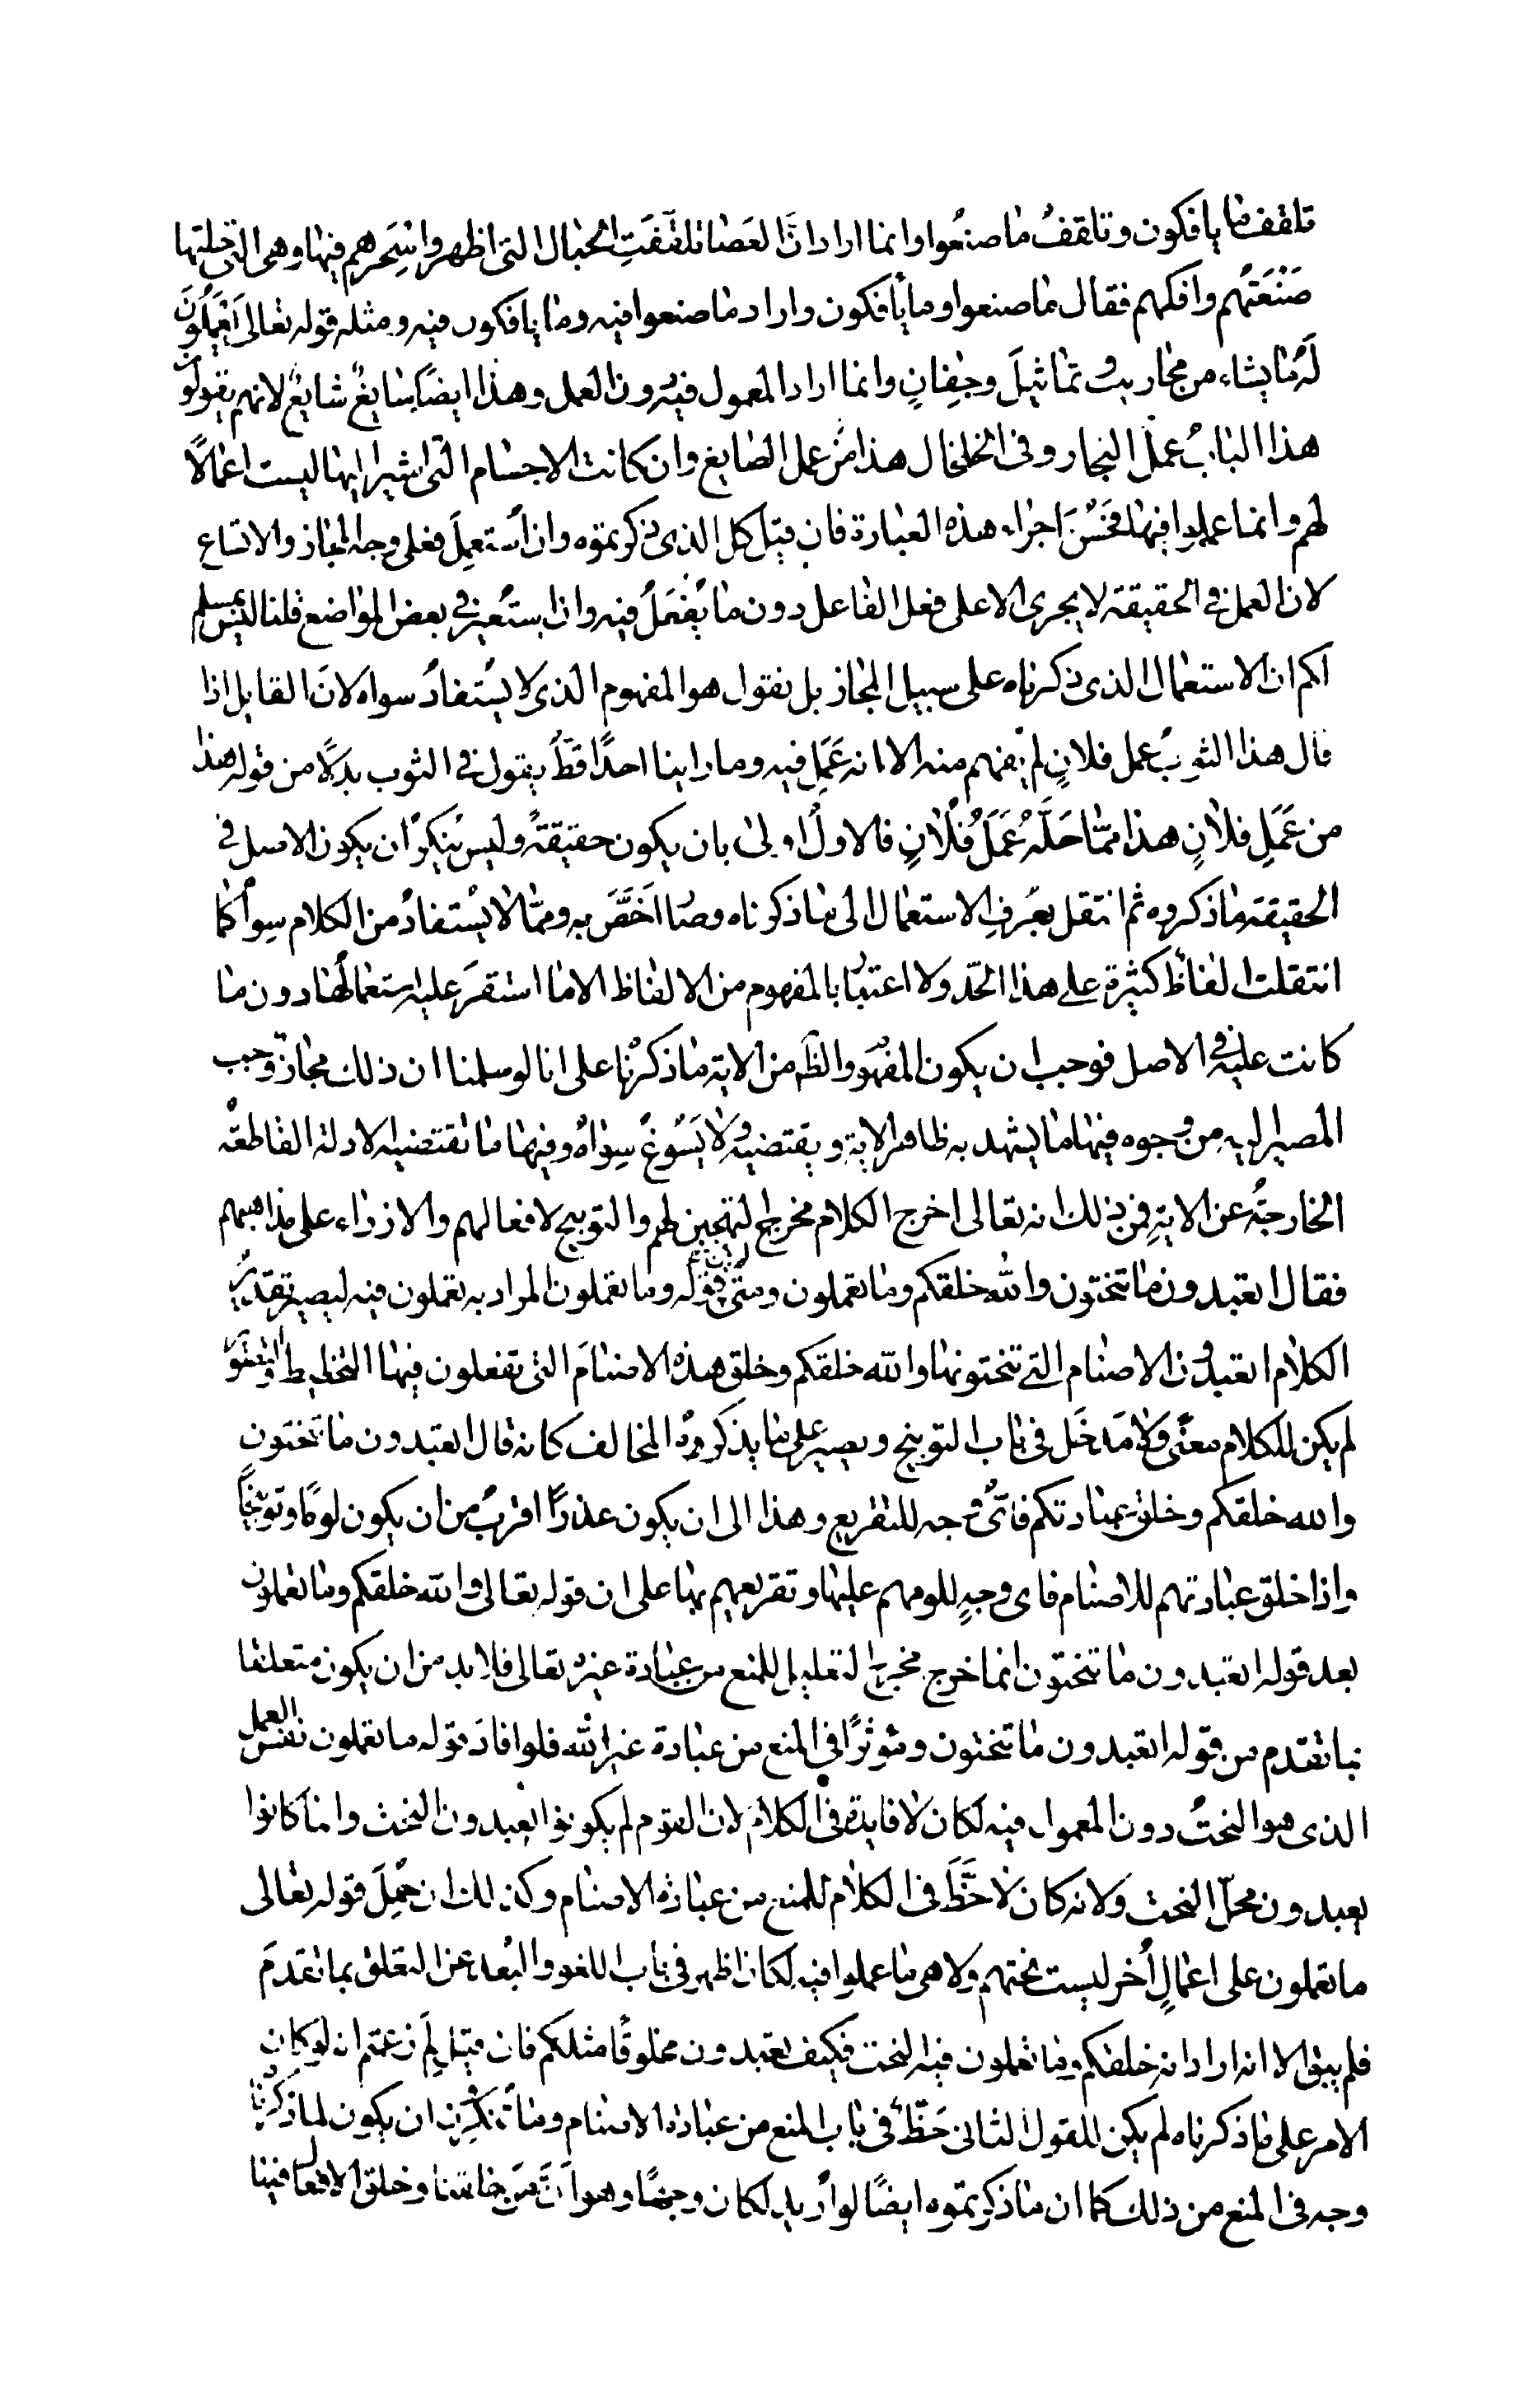 تلقف ما يافكون وتلقف ما صنعوا وانما اراد انّ العصا تلقّفَتِ الحبال التى اظهروا سِحَرهم فيها وهى التى حلتها
صَنْعَتُهم وافكهم فقال ما صنعوا وما يأفكون واراد ما صنعوا فيه وما يافكون فيه ومثله قوله تعالى اَتعْبُدُونَ
لَه ما يشاء من محاريب وتماثيلَ وجِفانٍ وانما اراد المعمول فيه دون العمل وهذا ايضًا سايغٌ شايعٌ لانهم يقولون
هذا البابُ عملُ النجار وفى الخلخال هذا مِنْ عمل الصايغ وان كانت الاجسام التى اشير اليها ليست اعمالًا
لهم وانما عملوا فيها فحَسُنَ اجراء هذه العبارة فان قيل كل الذى ذكرتموه وان اُستعمِلَ فعلى وجه المجاز والاتساع
لان العمل فى الحقيقة لا يجرى الا على فعل الفاعل دون ما يُفعَلُ فيه وان استُعير فى بعض المواضع قلنا ليس بمسلم
لكم ان الاستعمال الذى ذكرناه على سبيل المجاز بل نقول هو المفهوم الذى لا يُستفادُ سواه لانّ القايل اذا
قال هذا الثوبُ عمل فلانٍ لم يُفهم منه الا انه عَمَلٌ فيه وما راينا احدًا قطّ يقول فى الثوب بدلًا من قوله هذا
من عَمَلِ فلانٍ هذا ممّا حَلَّهُ عَمَلُ فُلانٍ فالاول اولى بان يكون حقيقةً وليس يُنكرُ ان يكون الاصل فى
الحقيقة ما ذكروه ثم انتقل بعُرفِ الاستعمال الى ما ذكرناه وصار اَخَصَّ به وممّا لا يُستفادُ من الكلام سِواه كما
انتقلت الفاظٌ كثيرة على هذا الحدّ ولا اعتبار بالمفهوم من الالفاظ الا ما استقرَ عليه استعمالُها دون ما
كانت عليه فى الاصل فوجب ان يكون المفهوم والظم من الاية ما ذكرنا على انا لو سلمنا ان ذلك مجاز وجب
المصير اليه من وجوه فيها ما يشهد به ظاهر الاية ويقتضيه ولا يَسُوغُ سِواهُ وفيها ما تقتضيه الادلة القاطعة
الخارجةُ عن الايةِ فمن ذلك انه تعالى اخرج الكلام مخرج التهجين لهم والتوبيخ لافعالهم والازراء على مذاهبهم
فقال اتعبدون ما تنحتون والله خلقكم وما تعملون ومتى قوله وما تعملون المراد به تعملون فيه ليصير تقديرُ
الكلام اتعبدون الاصنام التى تنحتونها والله خلقكم وخلق هذه الاصنامَ التى تفعلون فيها التخطيط والتصوير
لم يكن للكلام معنًى ولا مَدخَل فى باب التوبيخ ويصير على ما يذكره المخالف كانه قال اتعبدون ما تنحتون
والله خلقكم وخلق عبادتكم فاىُّ وجه للتقريع وهذا الى ان يكون عذرًا اقربُ من ان يكون لومًا وتوبيخًا
واذا خلق عبادتهم للاصنام فاى وجهٍ للومهم عليها وتقريعهم بها على ان قوله تعالى والله خلقكم وما تعملون
بعد قوله اتعبدون ما تنحتون انما خرج مخرج التعليل للمنع من عبادة غيره تعالى فلا بد من ان يكون متعلقا
بما تقدم من قوله اتعبدون ما تنحتون ومؤثرًا فى المنع من عبادة غير الله فلو افادَ قوله ما تعملون نفس العمل
الذى هو النحتُ دون المعمول فيه لكان لا فايدة فى الكلام لان القوم لم يكونوا يعبدون النحت وانما كانوا
يعبدون محلّ النحت ولانه كان لا حَظَّ فى الكلام للمنع من عبادة الاصنام وكذلك ان حُمِلَ قوله تعالى
ما تعملون على اعمالٍ اُخر ليست نحتهم ولا هى ما عملوا فيه لكان اظهر فى باب اللغو والبُعد عن التعلق بما تقدمَ
فلم يبق الا انه اراد انه خلقكم وما تعملون فيه النحت فكيف تعبدون مخلوقًا مثلكم فان قيل لِمَ زعمتم انه لو كان
الامر على ما ذكرناه لم يكن للقول الثانى حَظٌّ فى باب المنع من عبادة الاصنام وما تُنكرون ان يكون لما ذكرنا
وجه فى المنع من ذلك كما ان ما ذكرتموه ايضًا لو اُريد لكان وجهًا وهو انّ مَن خلقنا وخلق الافعال فينا